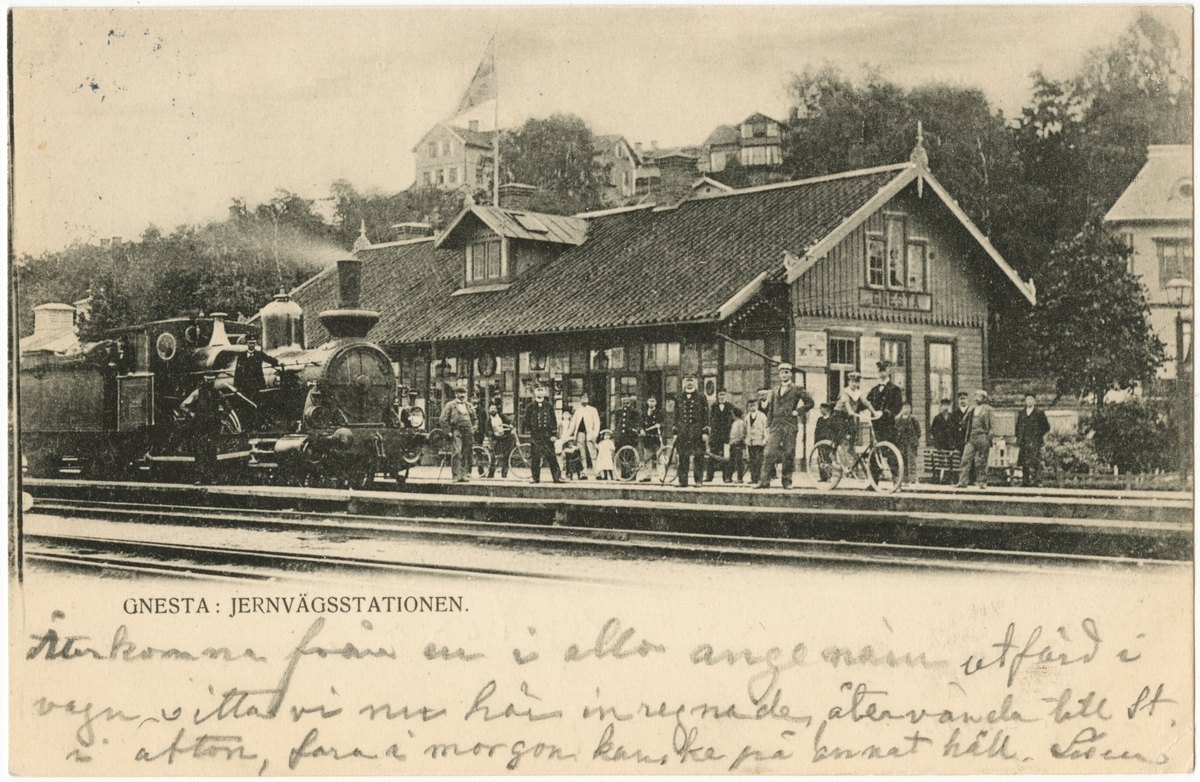 GNESTA
GNESTA: JERNVÄGSSTATIONEN.
Återkomna från en i allo angenäm utfärd i
vagn, sitta vi nu här inregnade, återvända till St.
i afton, fara i morgon kanske på annat håll.